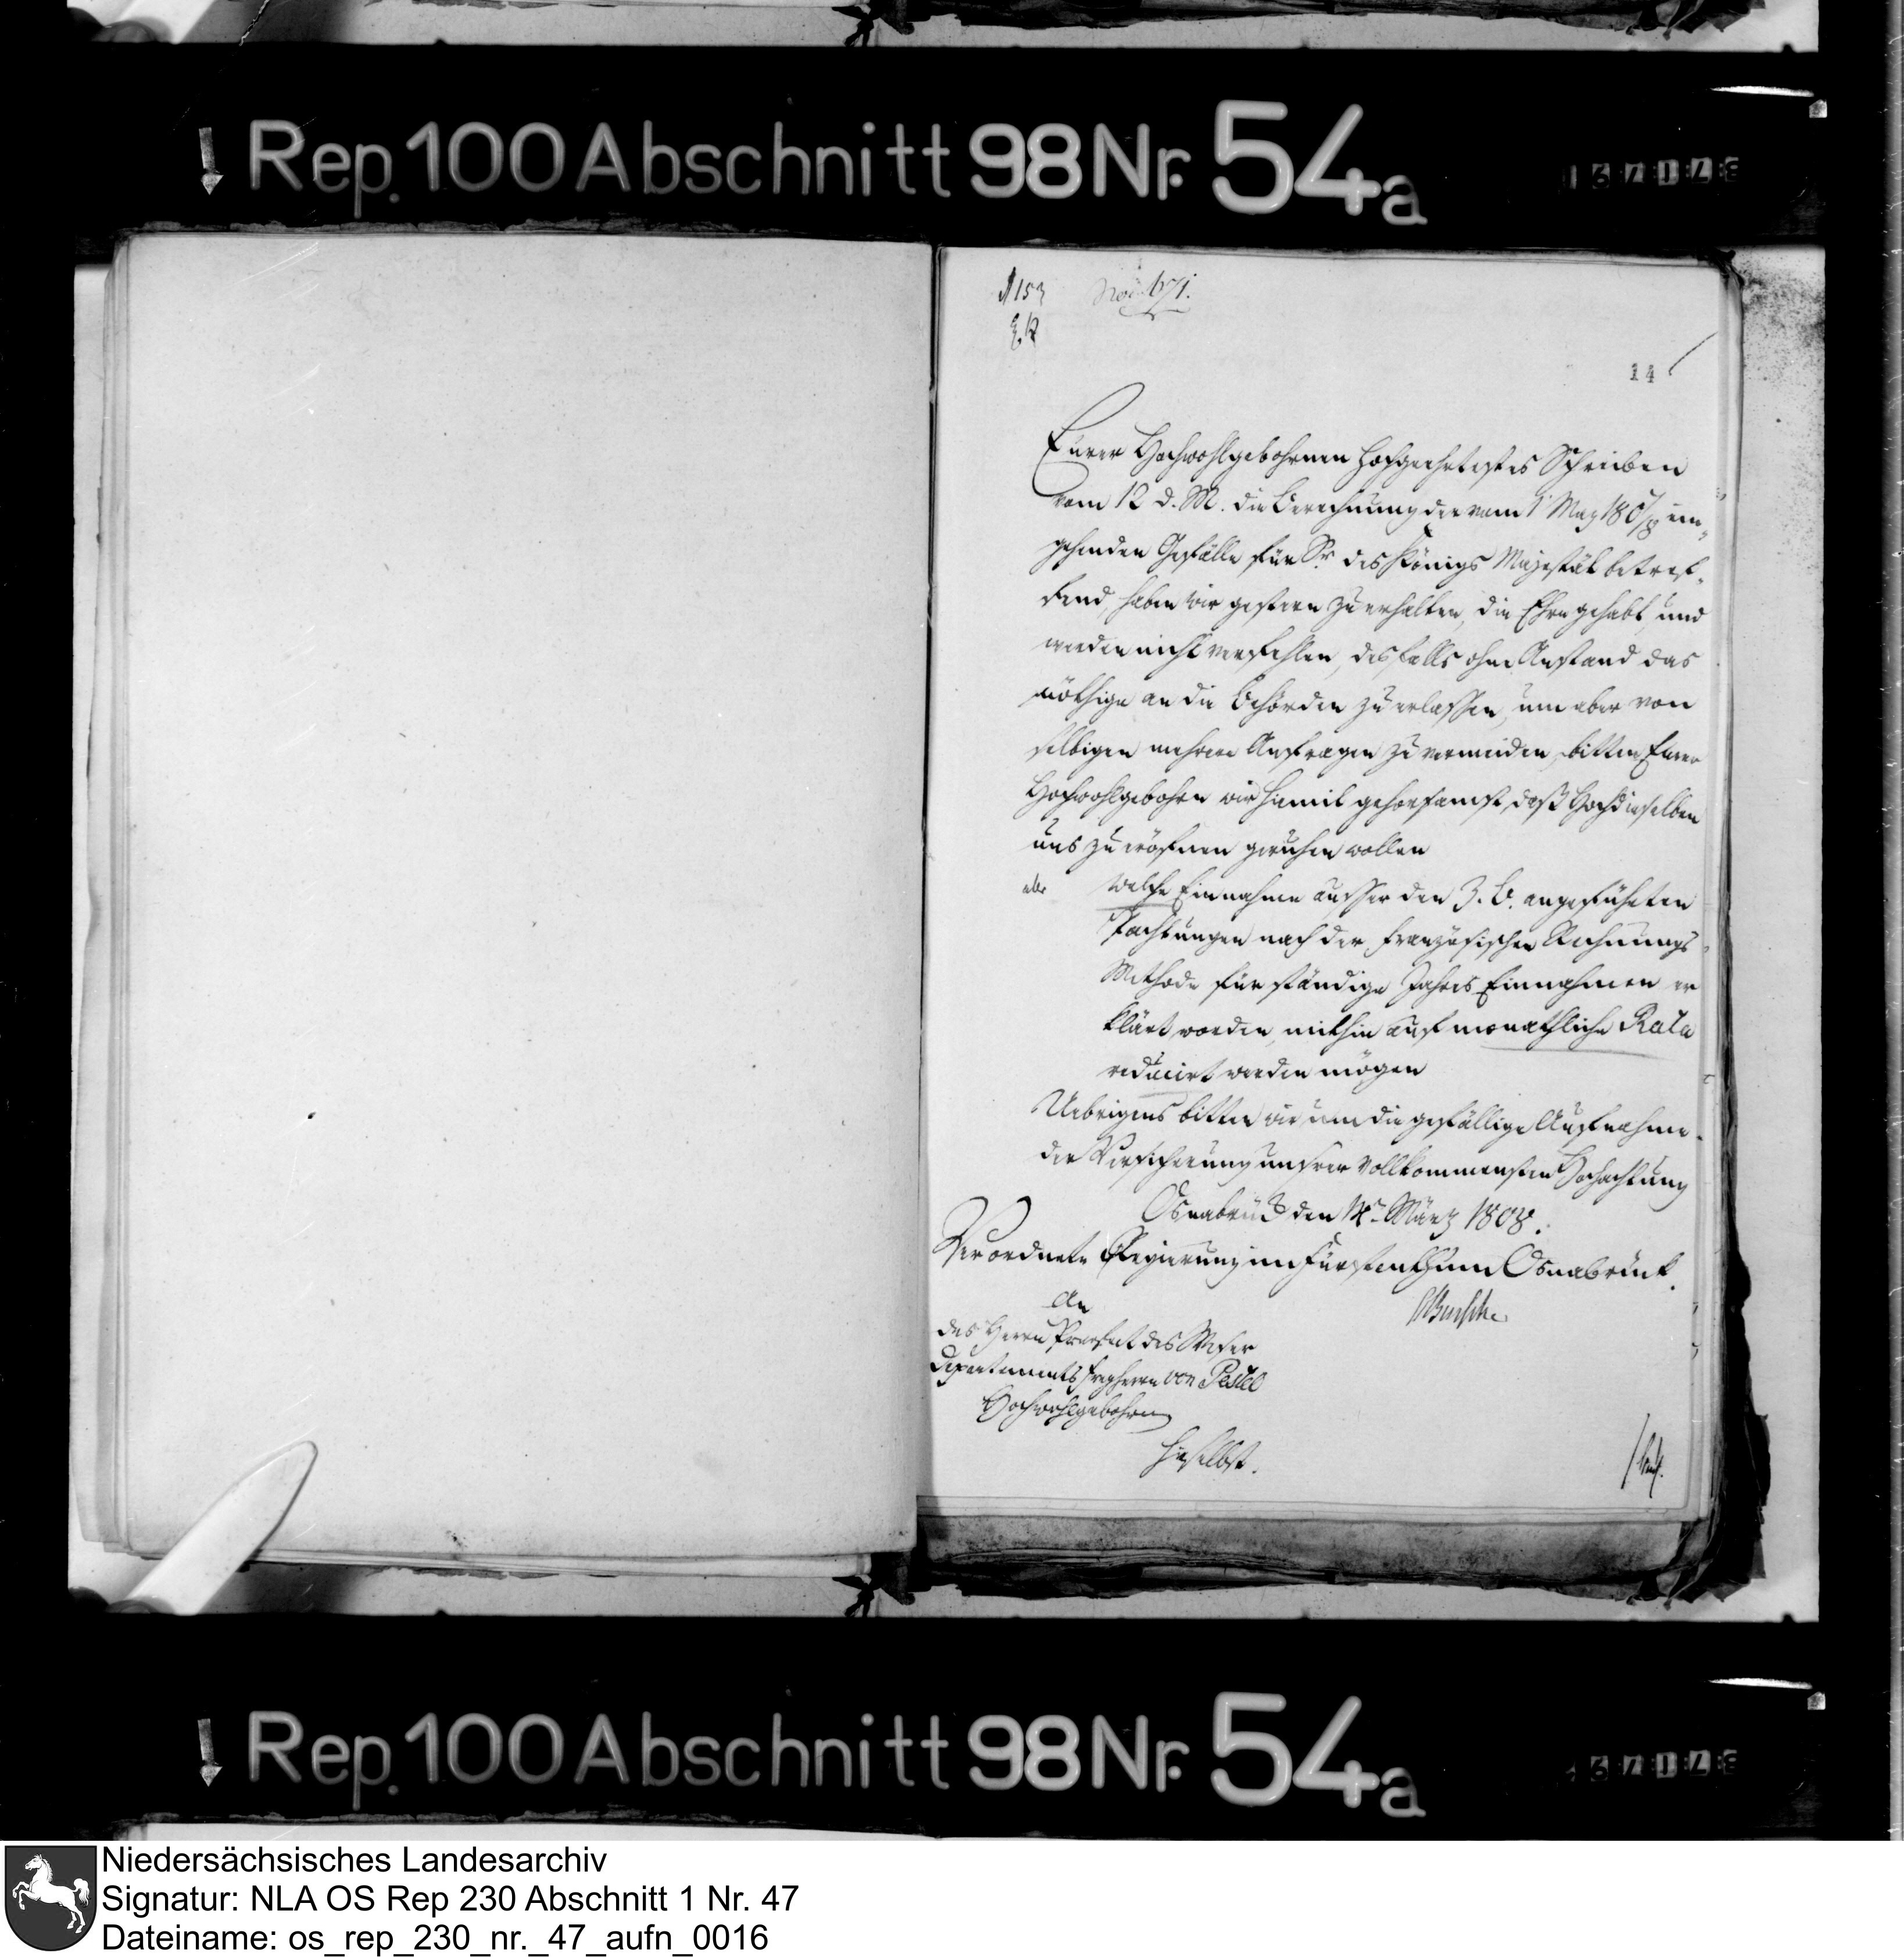 Rep. 100 Abschnitt 98 Nr. 54a
153
14
Eurer Hochwohlgebohrnen hochgeehrtestes Schreiben
vom 12 d. M. die Berechnung der vom 1 May 1807/8 ein„
gehenden Gefälle für Sr des Königs Majestät betref„
fend, haben wir gestern zu erhalten, die Ehre gehabt, und
werden nicht verfehlen, desfalls ohne Anstand das
nöthige an die Behörden zu erlassen, um aber von
selbigen mehrere Anfragen zu vermeiden, bitten Eurer
Hochwohlgebohrn wir hiemit gehorsamst, daß Hochdieselben
uns zu eröfnen geruhen wollen
welche Einnahme ausser den z. B. angeführten
Pachtungen nach der französischen Rechnungs
Methode für ständige Jahres Einnahmen er
klärt worden, mithin auf monathliche Rata
reducirt werden mögen
Uebrigens bitten wir um die gefällige Aufnahme
der Versicherung unsrer vollkommensten Hochachtung
Osnabrück den 14n März 1808.
Verordnete Regierung im Fürstenthum Osnabrück.
Busche
An
des Herrn Praefect des Weser
Departements Freyherrn von Pestel
Hochwohlgebohrn
hieselbst.
Rep. 100 Abschnitt 98 Nr. 54a
Niedersächsisches Landesarchiv
Signatur: NLA OS Rep 230 Abschnitt 1 Nr. 47
Dateiname: os_rep_230_nr._47_aufn_0016